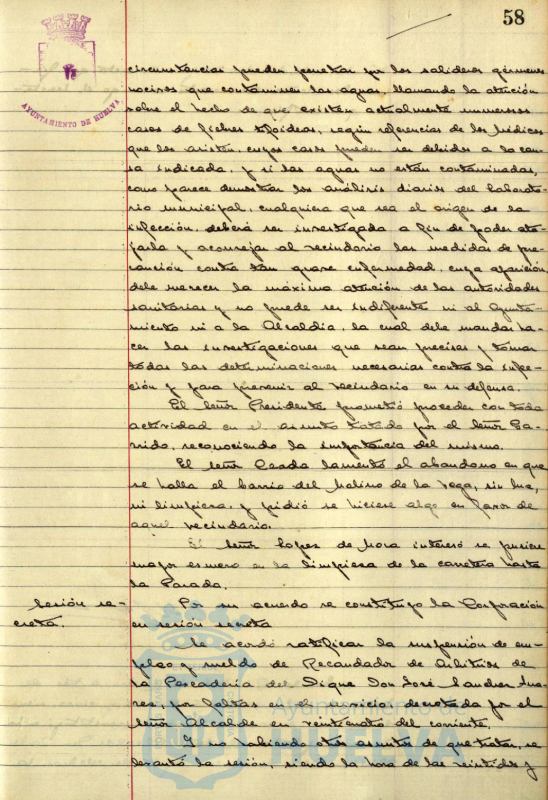 58
AYUNTAMIENTO DE HUELVA
circunstancias pueden penetrar por los salideros gérmenes
nocivos que contaminen las aguas, llamando la atención
sobre el hecho de que existen actualmente numerosos
casos de fiebres tifoideas, según referencias de los Médicos
que los asisten, cuyos casos pueden ser debidos a la cau-
sa indicada, y si las aguas no están contaminadas,
como parece demostrar los análisis diarios del Laborato-
rio municipal, cualquiera que sea el origen de la
infección, deberá ser investigada a fin de poder ata-
jarla y aconsejar al vecindario las medidas de pre-
caución contra tan grave enfermedad, cuya aparición
debe merecer la máxima atención de las autoridades
sanitarias y no puede ser indiferente ni al Ayunta-
miento ni a la Alcaldía, la cual debe mandar ha-
cer las investigaciones que sean precisas y tomar
todas las determinaciones necesarias contra la infec-
ción y para prevenir al vecindario en su defensa.
El Señor Presidente prometió proceder con toda
actividad en el asunto tratado por el Señor Ga-
rrido, reconociendo la importancia del mismo.
El señor Ceada lamentó el abandono en que
se halla el barrio del Molino de la Vega, sin luz,
ni limpieza, y pidió se hiciese algo en favor de
aquel vecindario.
El Señor Lopez de Mora interesó se pusiere
mayor esmero en la limpieza de la carretera hasta
la Parada.
Sesión se-
creta.
Por su acuerdo se constituyó la Corporación
en sesión secreta
Se acordó ratificar la suspensión de em-
pleo y sueldo de Recaudador de Arbitrios de
la Pescadería del Dique Don José Sanchez Sua-
res, por faltas en el servicio, decretada por el
Señor Alcalde en veinticuatro del corriente.
Y no habiendo otros asuntos de que tratar, se
levantó la sesión, siendo la hora de las veintidos y
Ayuntamiento de
HUELVA